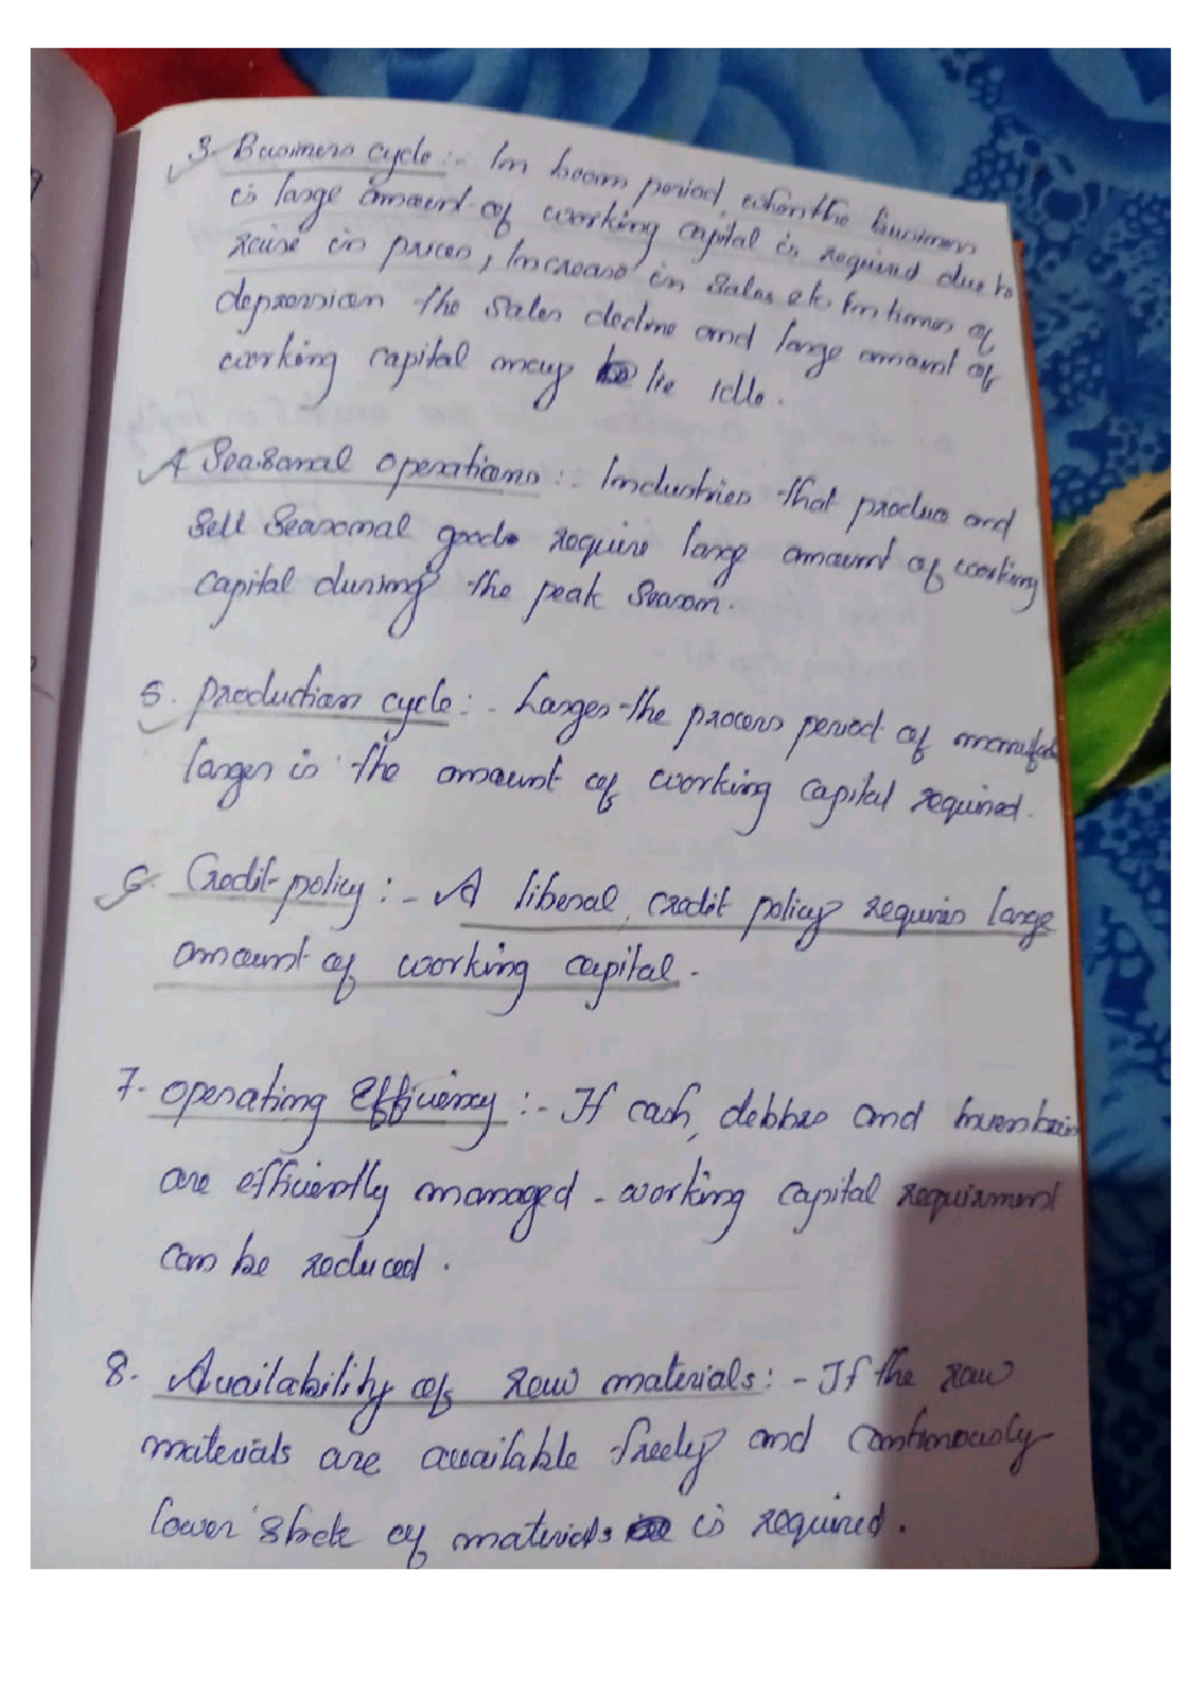 3. Business cycle :- In boom period, when the business
is large amount of working capital is required due to
raise in prices, Increase in sales etc. In times of
depression the sales decline and large amount of
working capital may lie idle.
4 Seasonal operations :- Industries that produce and
sell seasonal goods require large amount of working
capital during the peak season.
5. production cycle :- Larger the process period of
larger is the amount of working capital required.
6. Credit policy :- A liberal credit policy requires large
amount of working capital.
7. operating Efficiency :- If cash, debtors and
are efficiently managed - working capital requirment
can be reduced.
8. Availability of raw materials :- If the raw
materials are available freely and continuously
lower stock of materials is required.